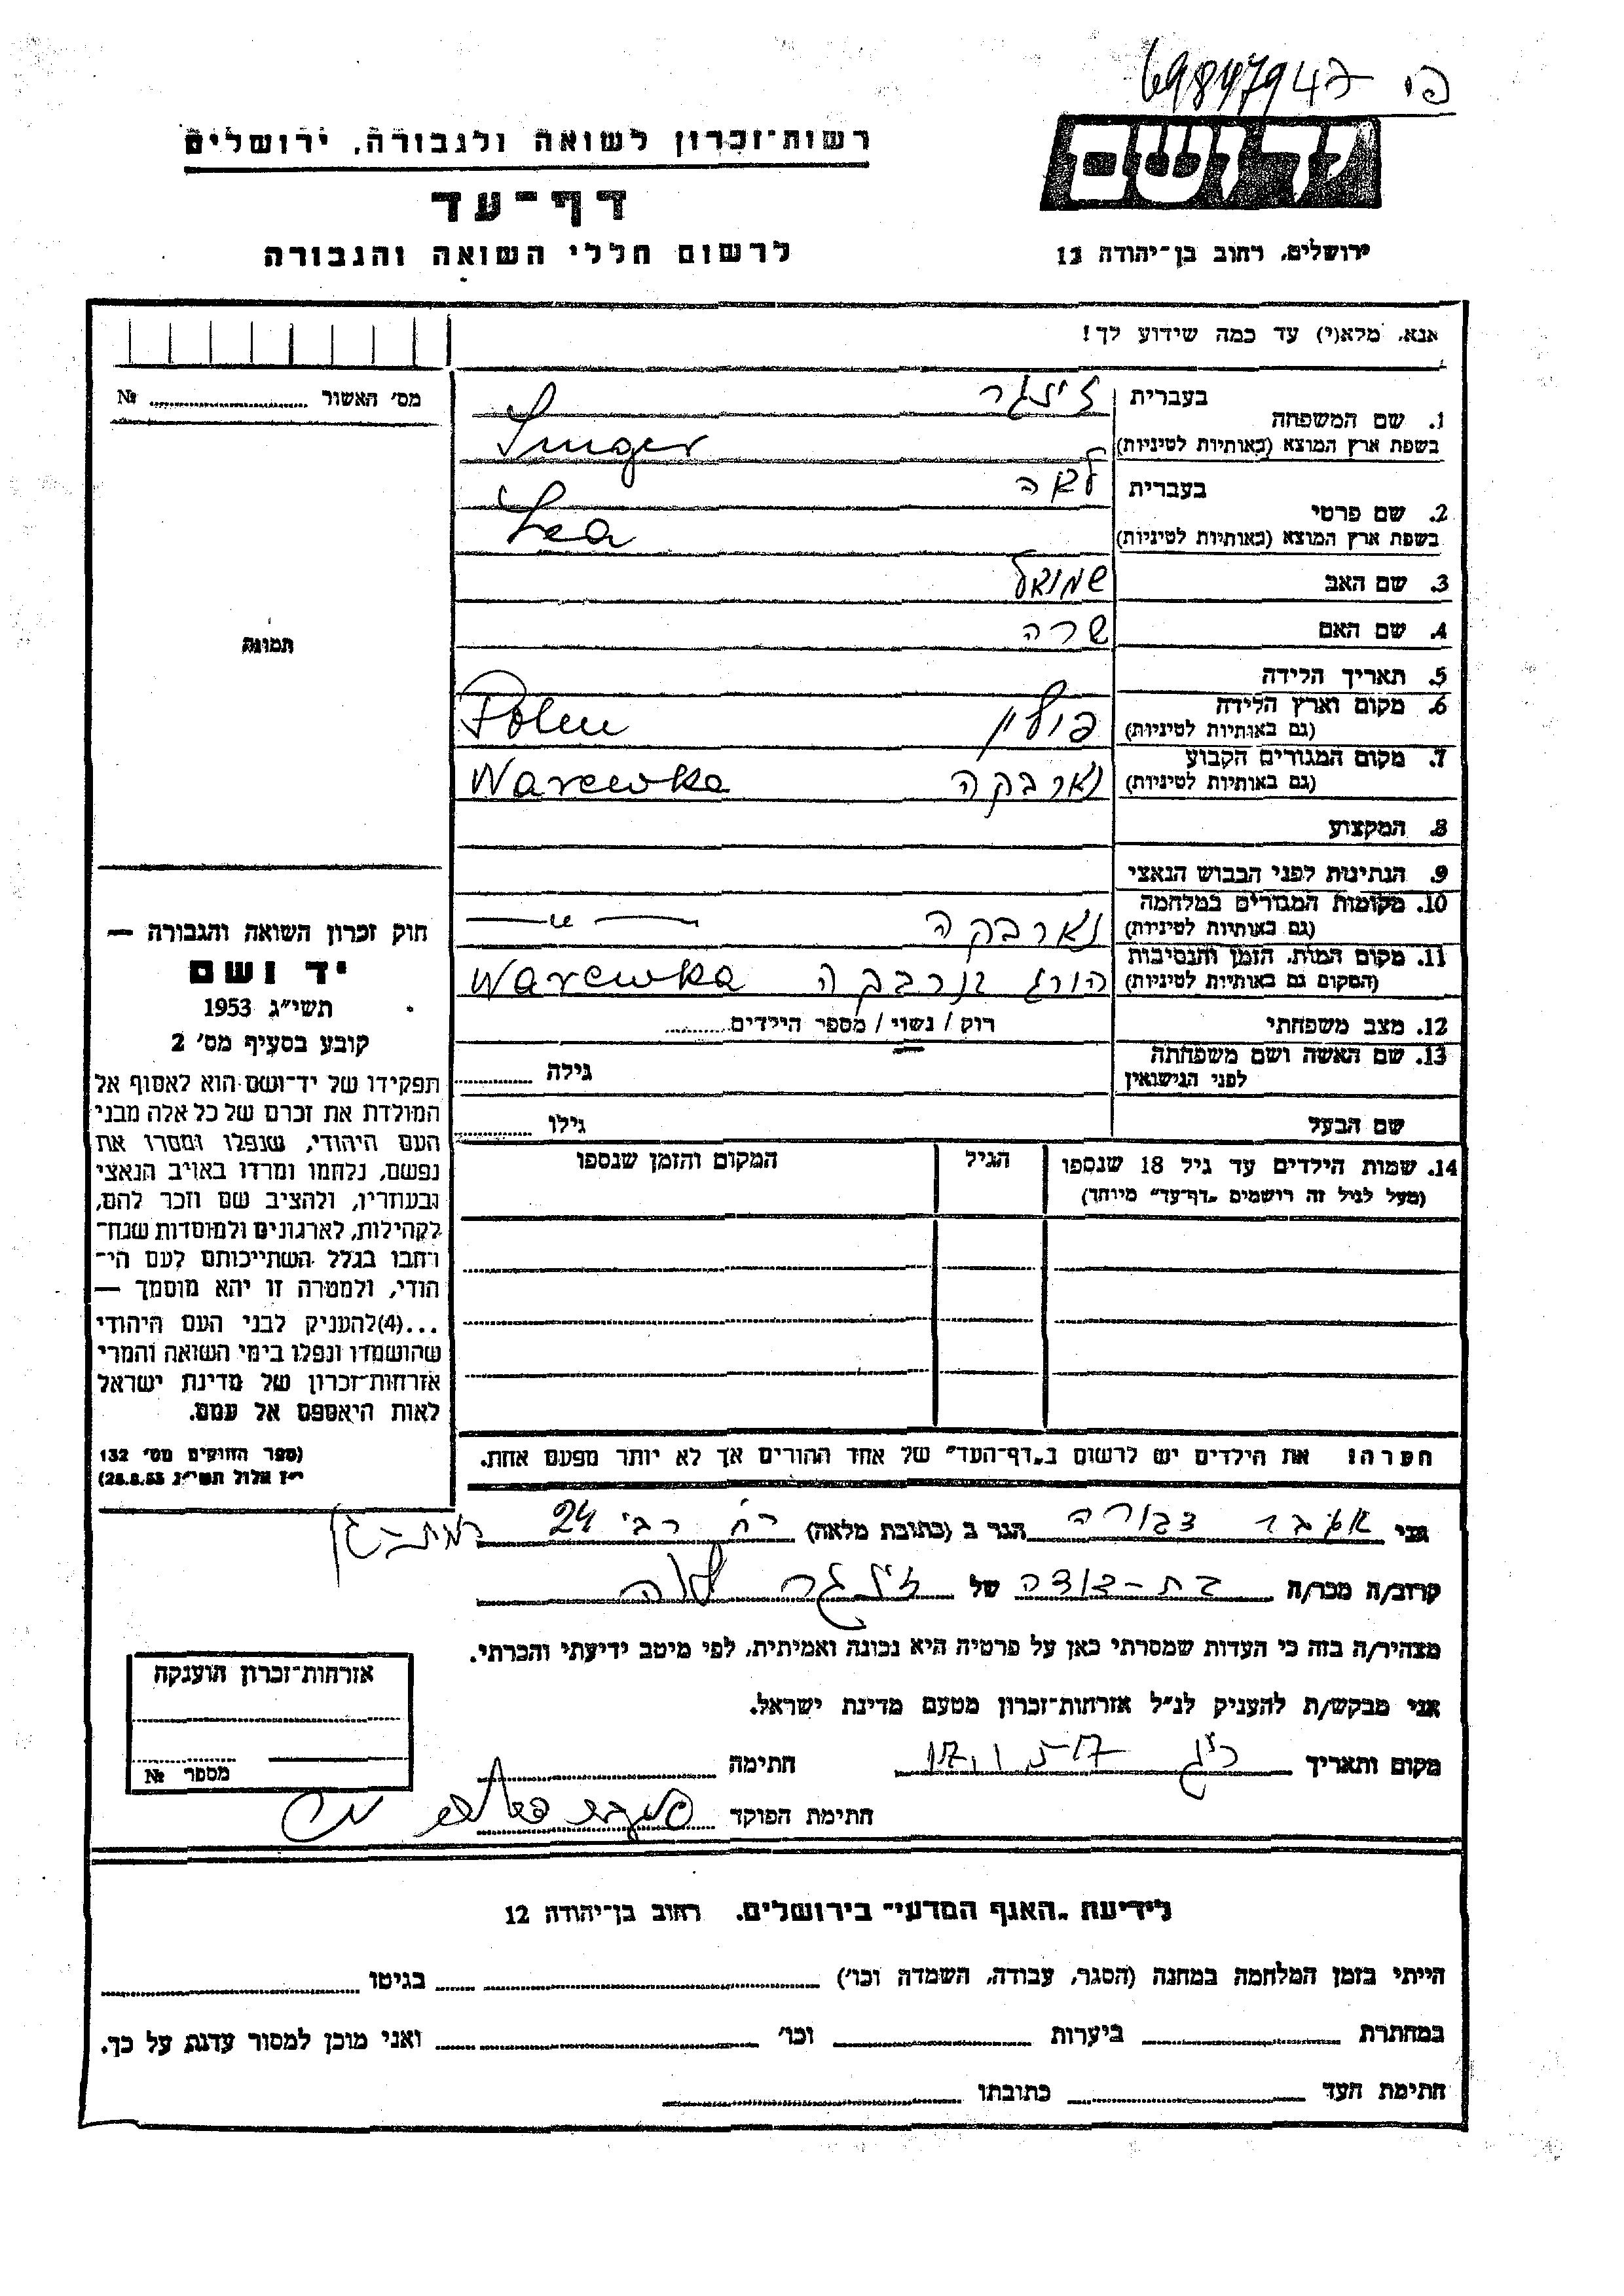 פי 69847942
ידושם
רשות־זכרון לשואה ולגבורה, ירושלים
דף־עד
לרשום חללי השואה והגבורה
ירושלים, רחוב בן־יהודה 12
אנא, מלא(י) עד כמה שידוע לך!
מס׳ האשור № 
1. שם המשפחה
בעברית זינגר
בשפת ארץ המוצא (באותיות לטיניות) Singer
2. שם פרטי
בעברית לאה
בשפת ארץ המוצא (באותיות לטיניות) Lea
3. שם האב שמואל
4. שם האם שרה
תמונה
5. תאריך הלידה
6. מקום וארץ הלידה
(גם באותיות לטיניות) פולין Polen
7. מקום המגורים הקבוע
(גם באותיות לטיניות) וארבקה Warewka
8. המקצוע
9. הנתינות לפני הכבוש הנאצי
10. מקומות המגורים במלחמה
(גם באותיות לטיניות) וארבקה
11. מקום המות, הזמן והנסיבות
(המקום גם באותיות לטיניות) הורג Warewka
12. מצב משפחתי רוק / נשוי / מספר הילדים
13. שם האשה ושם משפחתה
לפני הנישואין גילה
שם הבעל גילו
14. שמות הילדים עד גיל 18 שנספו
(מעל לגיל זה רושמים „דף־עד״ מיוחד)
הגיל
המקום והזמן שנספו
חוק זכרון השואה והגבורה —
יד ושם
תשי״ג 1953
קובע בסעיף מס׳ 2
תפקידו של יד־ושם הוא לאסוף אל
המולדת את זכרם של כל אלה מבני
העם היהודי, שנפלו ומסרו את
נפשם, נלחמו ומרדו באויב הנאצי
ובעוזריו, ולהציב שם וזכר להם,
לקהילות, לארגונים ולמוסדות שנח־
רבו בגלל השתייכותם לעם הי־
הודי, ולמטרה זו יהא מוסמך —
...(4)להעניק לבני העם היהודי
שהושמדו ונפלו בימי השואה והמרי
אזרחות־זכרון של מדינת ישראל
לאות היאספם אל עמם.
(ספר החוקים מס׳ 132
י״ז אלול תשי״ג 28.8.53)
הערה! את הילדים יש לרשום ב„דף־העד״ של אחד ההורים אך לא יותר מפעם אחת.
אני צבורה הגר ב (כתובת מלאה) רח רבי 24 רמת-גן
קרוב/ה מכר/ה בת-דודה של זינגר לאה
מצהיר/ה בזה כי העדות שמסרתי כאן על פרטיה היא נכונה ואמיתית, לפי מיטב ידיעתי והכרתי.
אני מבקש/ת להעניק לנ״ל אזרחות־זכרון מטעם מדינת ישראל.
מקום ותאריך ר״ג חתימה
חתימת הפוקד
אזרחות־זכרון הוענקה
מספר №
לידיעת „האגף המדעי״ בירושלים. רחוב בן־יהודה 12
הייתי בזמן המלחמה במחנה (הסגר, עבודה, השמדה וכו׳) בגיטו
במחתרת ביערות וכו׳ ואני מוכן למסור עדות על כך.
חתימת העד כתובתו